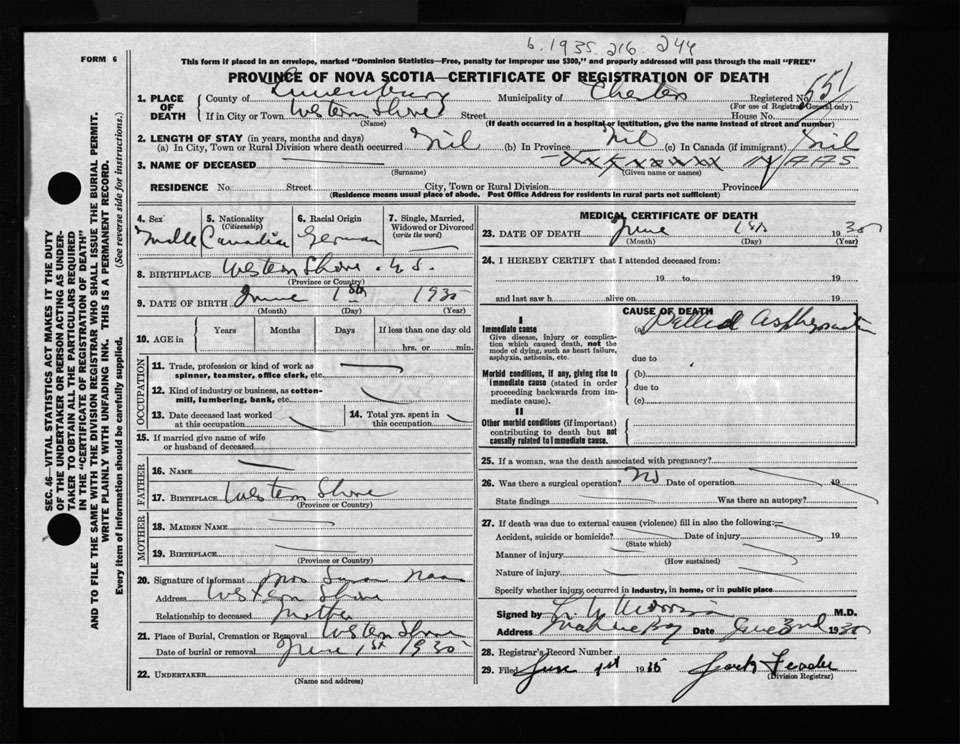 6. 1935. 216. 244
FORM 6
This form if placed in an envelope, marked "Dominion Statistics—Free, penalty for improper use $300," and properly addressed will pass through the mail "FREE"
PROVINCE OF NOVA SCOTIA—CERTIFICATE OF REGISTRATION OF DEATH
551
1. PLACE OF DEATH
County of Lunenburg Municipality of Chester Registered No.
(For use of Registrar General only)
If in City or Town Western Shore Street House No.
(Name) (If death occurred in a hospital or institution, give the name instead of street and number)
2. LENGTH OF STAY (in years, months and days)
(a) In City, Town or Rural Division where death occurred Nil (b) In Province Nil (c) In Canada (if immigrant) Nil
3. NAME OF DECEASED
(Surname) (Given name or names)
RESIDENCE No. Street City, Town or Rural Division Province
(Residence means usual place of abode. Post Office Address for residents in rural parts not sufficient)
4. Sex Male
5. Nationality (Citizenship) Canadian
6. Racial Origin German
7. Single, Married, Widowed or Divorced (write the word)
8. BIRTHPLACE Western Shore. N.S.
(Province or Country)
9. DATE OF BIRTH June 1st 1935
(Month) (Day) (Year)
10. AGE in Years Months Days If less than one day old
hrs. or min.
OCCUPATION
11. Trade, profession or kind of work as spinner, teamster, office clerk, etc.
12. Kind of industry or business, as cotton-mill, lumbering, bank, etc.
13. Date deceased last worked at this occupation
14. Total yrs. spent in this occupation
15. If married give name of wife or husband of deceased
FATHER
16. NAME
17. BIRTHPLACE Western Shore
(Province or Country)
MOTHER
18. MAIDEN NAME
19. BIRTHPLACE
(Province or Country)
20. Signature of informant Mrs Susan Naas
Address Western Shore
Relationship to deceased Mother
21. Place of Burial, Cremation or Removal Western Shore
Date of burial or removal June 1st 1935
22. UNDERTAKER
(Name and address)
MEDICAL CERTIFICATE OF DEATH
23. DATE OF DEATH June 1st 1935
(Month) (Day) (Year)
24. I HEREBY CERTIFY that I attended deceased from:
19 to 19
and last saw h alive on 19
CAUSE OF DEATH
I
Immediate cause
Give disease, injury or complication which caused death, not the mode of dying, such as heart failure, asphyxia, asthenia, etc.
(a) Pallid Asphyxia
due to
Morbid conditions, if any, giving rise to immediate cause (stated in order proceeding backwards from immediate cause).
(b)
due to
(c)
II
Other morbid conditions (if important) contributing to death but not causally related to immediate cause.
25. If a woman, was the death associated with pregnancy?
26. Was there a surgical operation? No Date of operation 19
State findings Was there an autopsy?
27. If death was due to external causes (violence) fill in also the following:—
Accident, suicide or homicide? Date of injury 19
(State which)
Manner of injury
(How sustained)
Nature of injury
Specify whether injury occurred in industry, in home, or in public place
Signed by M.D.
Address Mahone Bay Date June 3rd 1935
28. Registrar's Record Number
29. Filed June 1st 1935
(Division Registrar)
SEC. 46—VITAL STATISTICS ACT MAKES IT THE DUTY
OF THE UNDERTAKER OR PERSON ACTING AS UNDERTAKER TO OBTAIN ALL THE PARTICULARS REQUIRED
IN THE "CERTIFICATE OF REGISTRATION OF DEATH"
AND TO FILE THE SAME WITH THE DIVISION REGISTRAR WHO SHALL ISSUE THE BURIAL PERMIT.
WRITE PLAINLY WITH UNFADING INK. THIS IS A PERMANENT RECORD.
Every item of information should be carefully supplied. (See reverse side for instructions.)